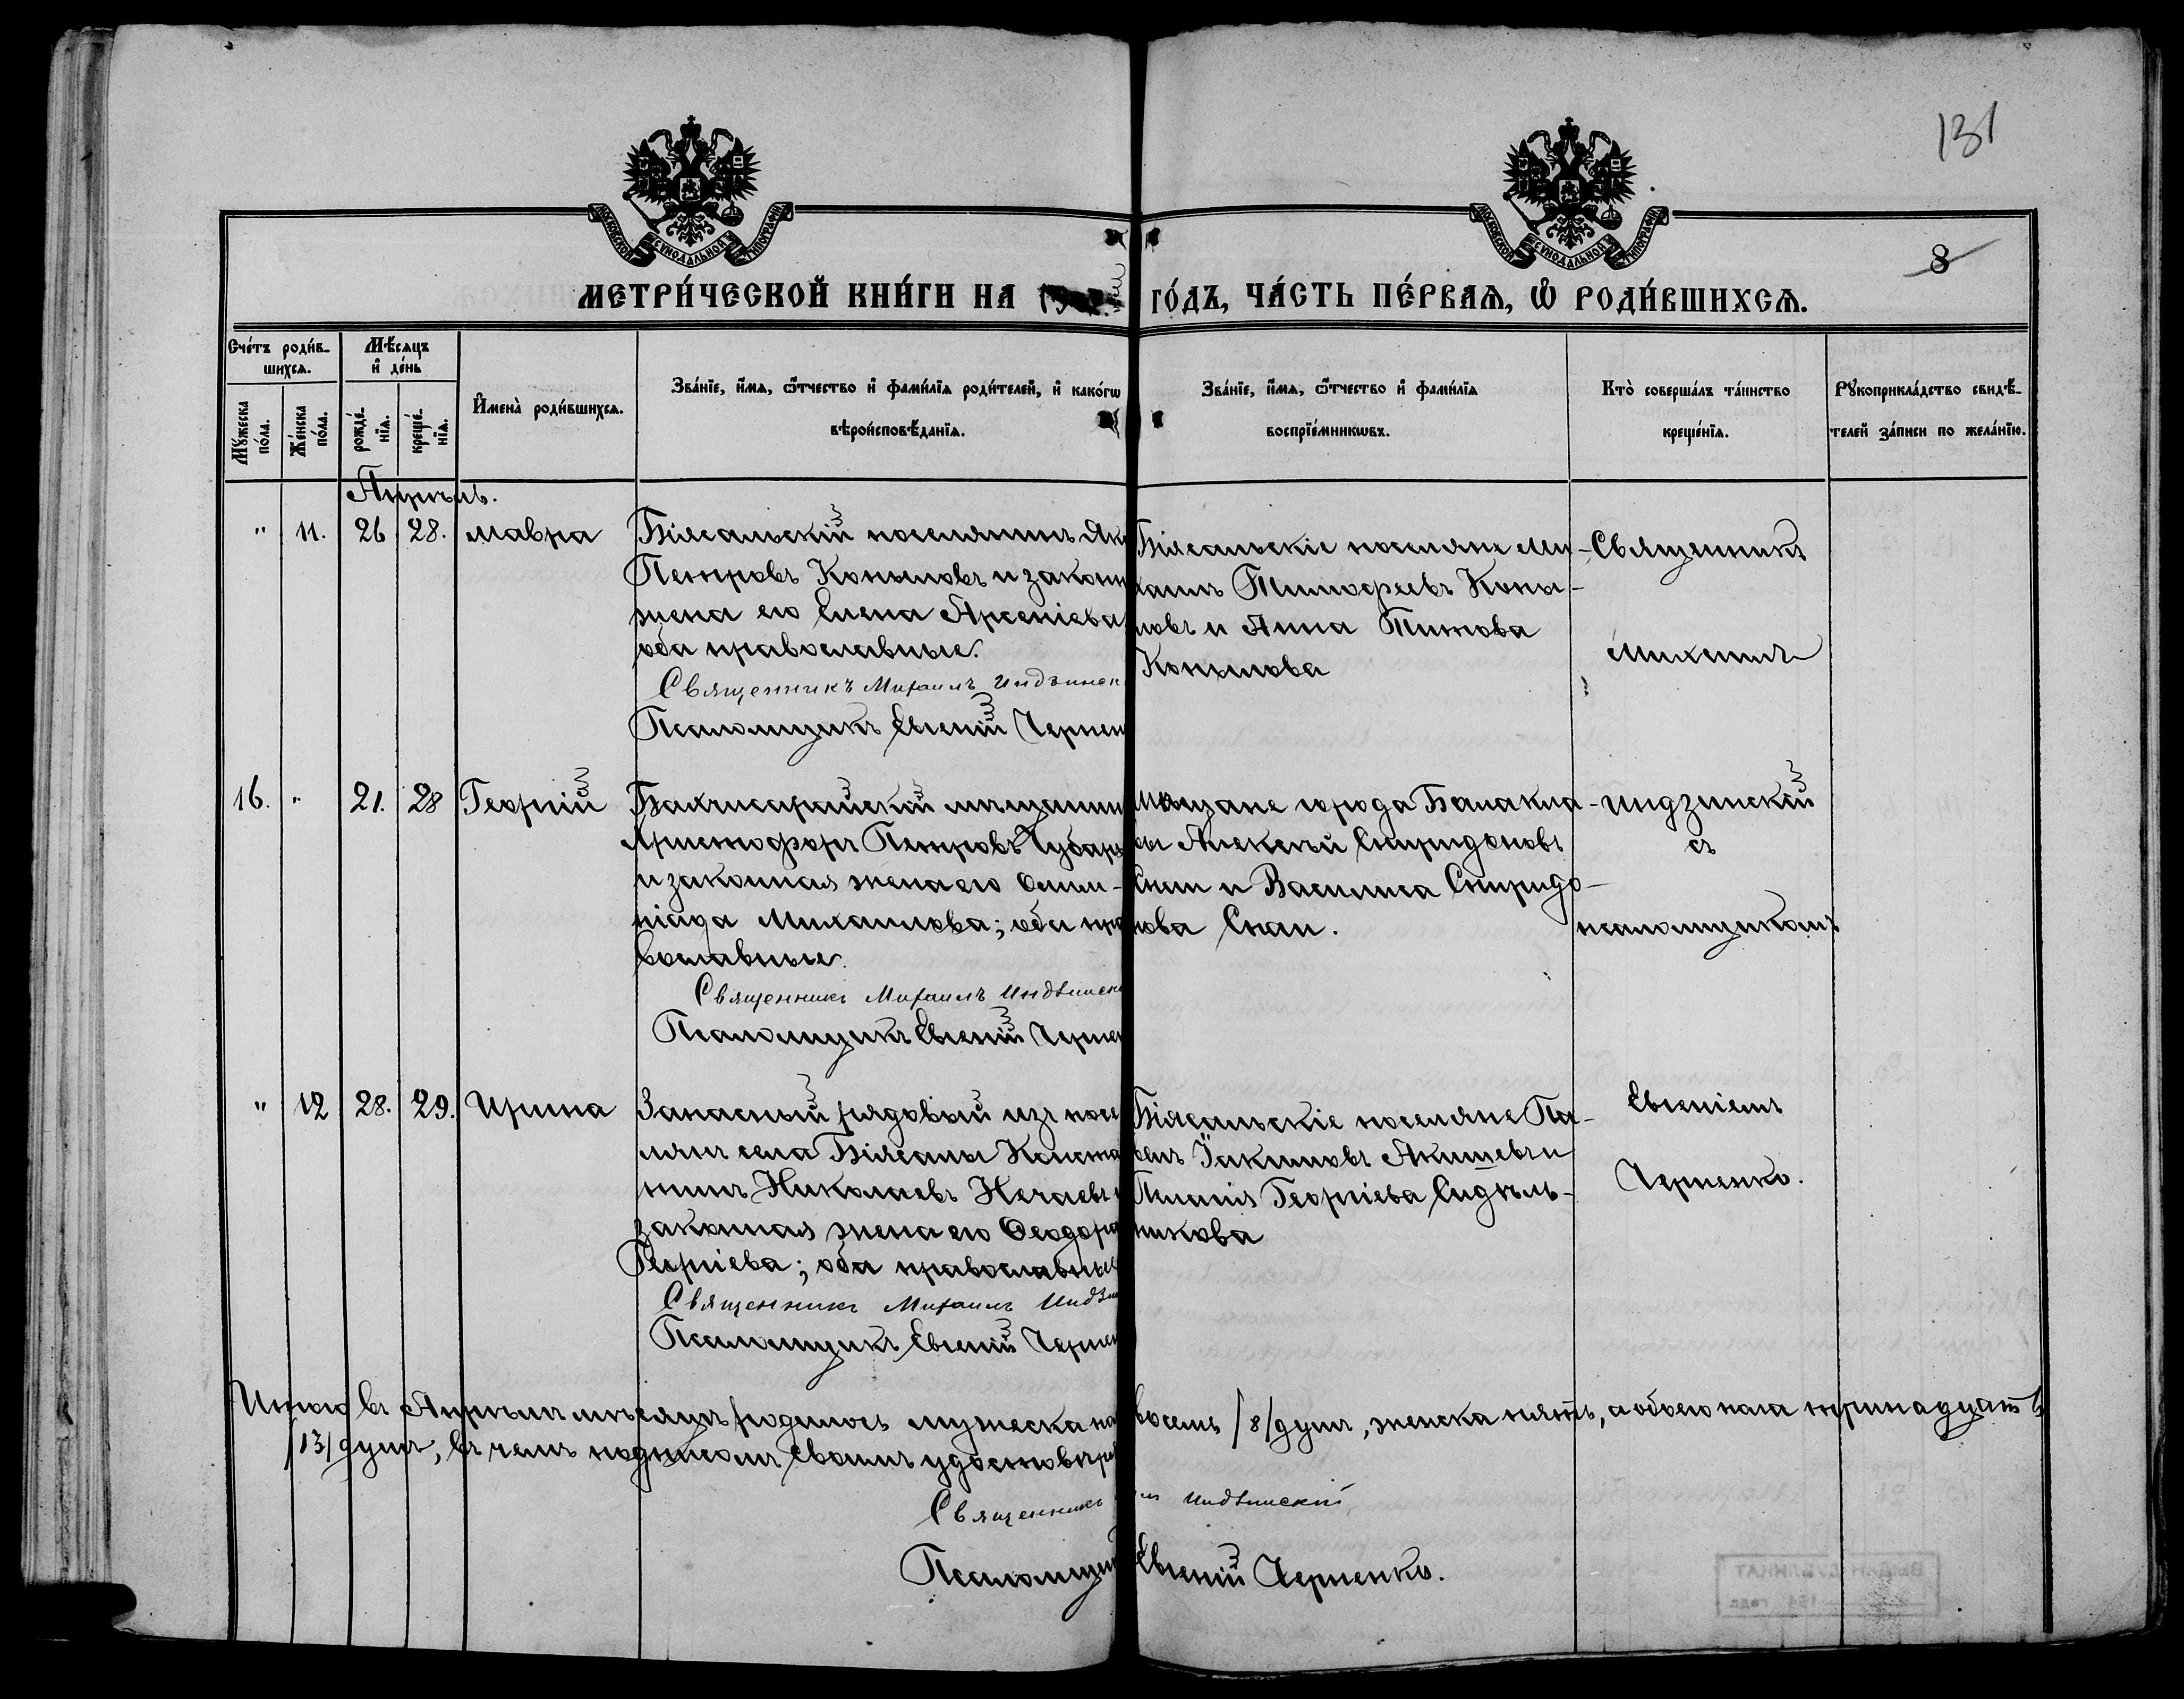 131
МОСКОВСКОЙ СѴНОДАЛЬНОЙ ТИПОГРАФІИ
МОСКОВСКОЙ СѴНОДАЛЬНОЙ ТИПОГРАФІИ
8
МЕТРИ́ЧЕСКОЙ КНИ́ГИ НА
ГО́ДЪ, ЧА́СТЬ ПЕ́РВАѦ, Ѽ РОДИ́ВШИХСѦ.
Сче́тъ роди́в-
шихсѧ.
Мѣ́сѧцъ
и҆ де́нь
Мꙋ́жеска
по́ла.
Же́нска
по́ла.
рожде́-
нїѧ.
креще́-
нїѧ.
И҆мена̀ роди́вшихсѧ.
Зва́нїе, и҆́мѧ, ѻ҆́тчество и҆ фами́лїѧ роди́телей, и҆ како́гѡ
вѣроисповѣ́данїѧ.
Зва́нїе, и҆́мѧ, ѻ҆́тчество и҆ фами́лїѧ
воспрїе́мникѡвъ.
Кто̀ соверша́лъ та́инство
креще́нїѧ.
Рꙋкоприкла́дство свидѣ́-
телей за́писи по жела́нїю.
Апрѣль.
" 11. 26 28. Мавра
Біясальскій поселянинъ Як
Петровъ Копыловъ и законн
жена его Елена Арсеніева
оба православные.
Священникъ Михаилъ Индзинск
Псаломщикъ Евгеній Чернен
Біясальскіе поселяне Ми-
хаилъ Тимофеевъ Копы-
ловъ и Анна Титова
Копылова
Священникъ
Михаилъ
16. " 21. 28 Георгій
Бахчисарайскій мѣщанин
Аристофоръ Петровъ Чубар
и законная жена его Олим-
піада Михаилова; оба пра
вославные.
Священникъ Михаилъ Индзинск
Псаломщикъ Евгеній Черне
мѣщане города Балакла-
вы Алексѣй Спиридоновъ
Спаи и Василиса Спиридо-
нова Спаи.
Индзинскій
съ
псаломщикомъ
" 12 28. 29. Ирина
Запасный рядовой изъ посе
лянъ села Біясалы Конста
тинъ Николаевъ Нечаевъ и
законная жена его Феодора
Георгіева; оба православны
Священникъ Михаилъ Индзи
Псаломщикъ Евгеній Чернен
Біясальскіе поселяне Па-
велъ Іакимовъ Акишевъ и
Пелагія Георгіева Сидѣль-
никова
Евгеніемъ
Черненко.
Итого въ Апрѣлѣ мѣсяцѣ родилось мужеска по восемь /8/ душъ, женска пять, а обоего пола тринадцать
/13/ душъ, въ чемъ подписомъ своимъ удостовѣря
Священникъ илъ Индзинскій
Псаломщи Евгеній Черненко.